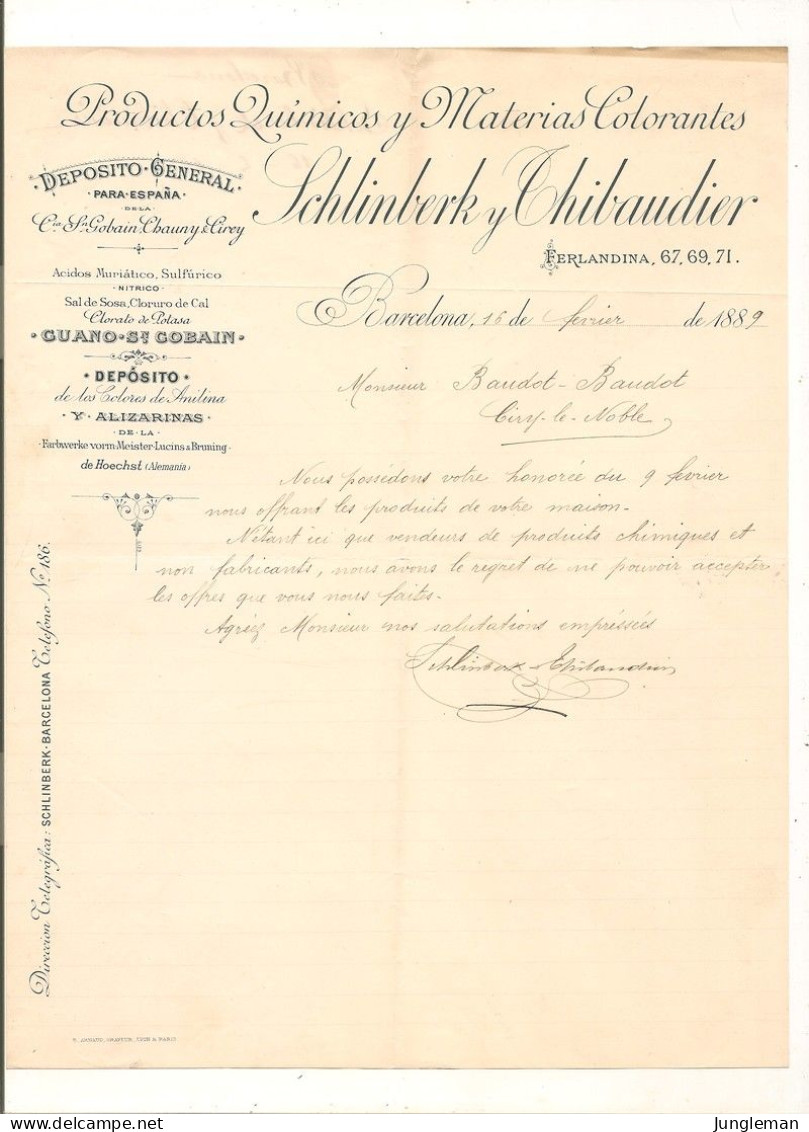 Productos Químicos y Materias Colorantes
Schlinberk y Thibaudier
FERLANDINA, 67, 69, 71.
DEPOSITO·GENERAL
PARA·ESPAÑA
DE LA
Cía Sn Gobain, Chauny & Cirey
Acidos Muriático, Sulfúrico
·NITRICO·
Sal de Sosa, Cloruro de Cal
Clorato de Potasa
·GUANO·ST GOBAIN·
·DEPÓSITO·
de los Colores de Anilina
·Y·ALIZARINAS·
·DE·LA·
·Farbwerke vorm·Meister·Lucins & Bruning·
de Hoechst (Alemania)
Direccion Telegráfica: SCHLINBERK·BARCELONA Telefono No 186.
Barcelona, 16 de fevrier de 1889
Monsieur Baudot-Baudot
Ciry-le-Noble
Nous possédons votre honorée du 9 fevrier
nous offrant les produits de votre maison.
N'étant ici que vendeurs de produits chimiques et
non fabricants, nous avons le regret de ne pouvoir accepter
les offres que vous nous faites.
Agréez Monsieur nos salutations empréssées
Schlinberk &Thibaudier
LYON & PARIS
www.delcampe.net
Jungleman